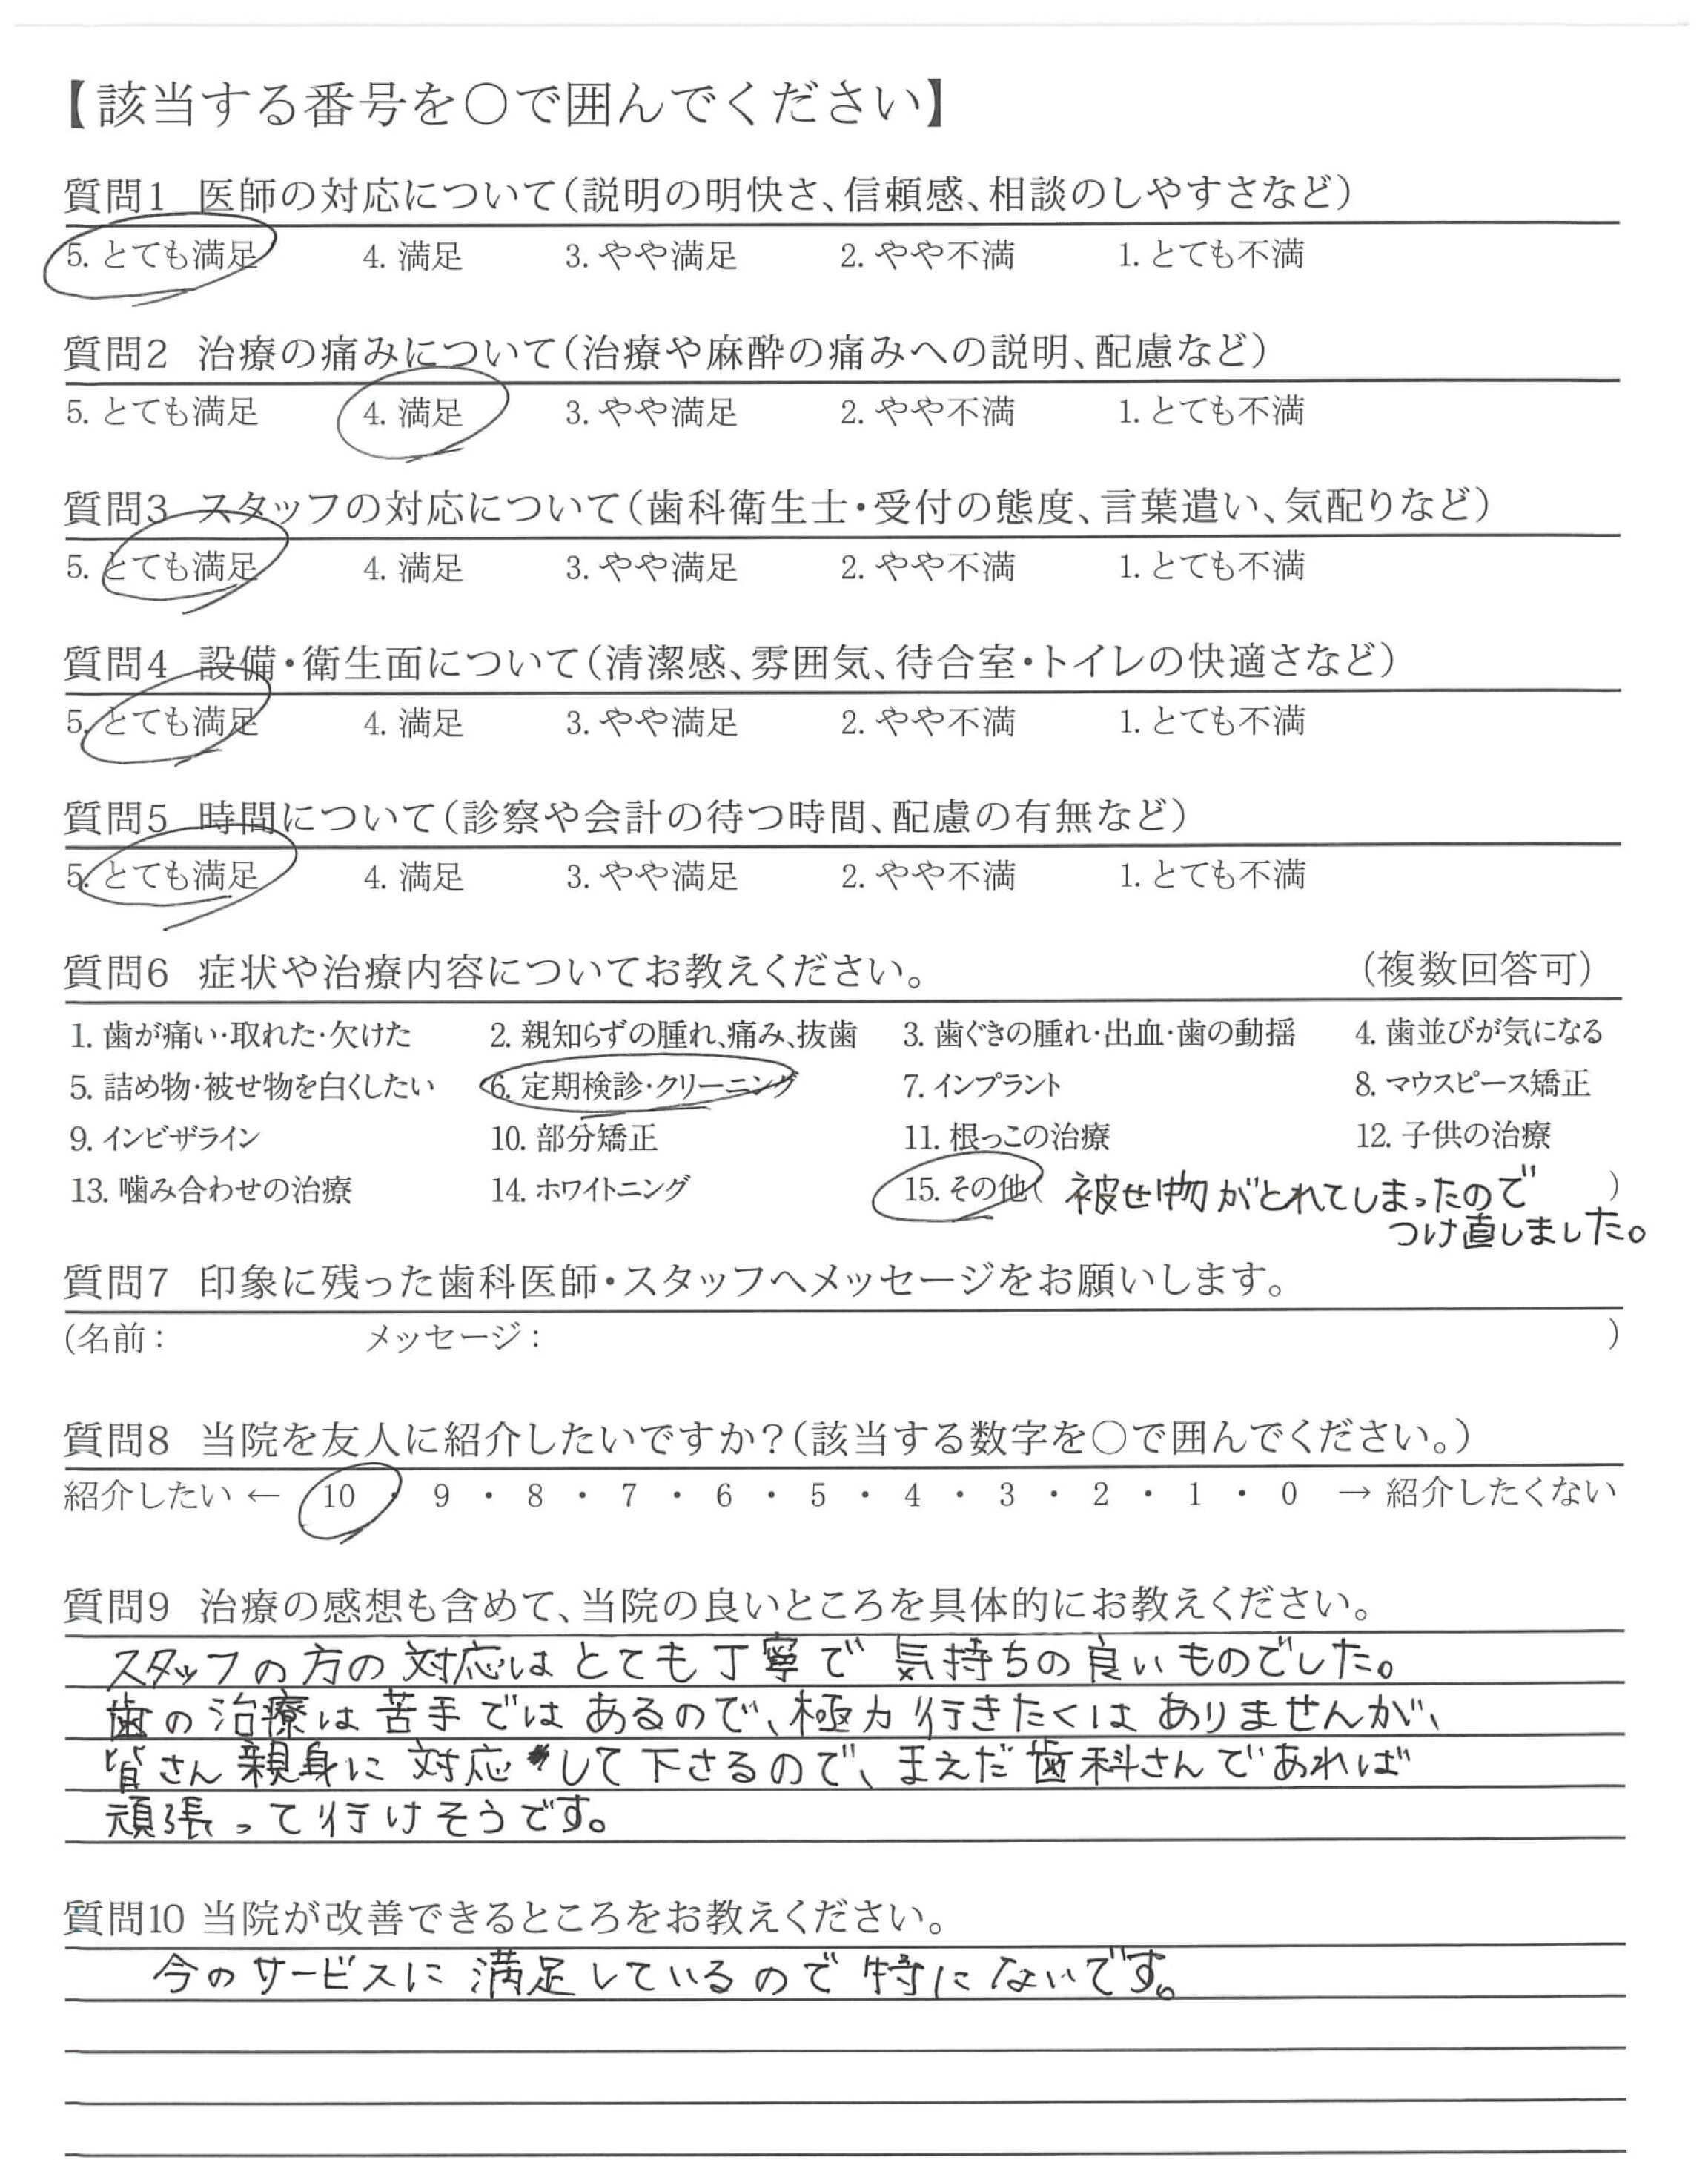 【該当する番号を○で囲んでください】
質問1 医師の対応について（説明の明快さ、信頼感、相談のしやすさなど）
5. とても満足 4. 満足 3. やや満足 2. やや不満 1. とても不満
質問2 治療の痛みについて（治療や麻酔の痛みへの説明、配慮など）
5. とても満足 4. 満足 3. やや満足 2. やや不満 1. とても不満
質問3 スタッフの対応について（歯科衛生士・受付の態度、言葉遣い、気配りなど）
5. とても満足 4. 満足 3. やや満足 2. やや不満 1. とても不満
質問4 設備・衛生面について（清潔感、雰囲気、待合室・トイレの快適さなど）
5. とても満足 4. 満足 3. やや満足 2. やや不満 1. とても不満
質問5 時間について（診察や会計の待つ時間、配慮の有無など）
5. とても満足 4. 満足 3. やや満足 2. やや不満 1. とても不満
質問6 症状や治療内容についてお教えください。 （複数回答可）
1. 歯が痛い・取れた・欠けた 2. 親知らずの腫れ、痛み、抜歯 3. 歯ぐきの腫れ・出血・歯の動揺 4. 歯並びが気になる
5. 詰め物・被せ物を白くしたい 6. 定期検診・クリーニング 7. インプラント 8. マウスピース矯正
9. インビザライン 10. 部分矯正 11. 根っこの治療 12. 子供の治療
13. 噛み合わせの治療 14. ホワイトニング 15. その他（ 被せ物がとれてしまったので ）
つけ直しました。
質問7 印象に残った歯科医師・スタッフへメッセージをお願いします。
（名前： メッセージ： ）
質問8 当院を友人に紹介したいですか？（該当する数字を○で囲んでください。）
紹介したい ← 10 ・ 9 ・ 8 ・ 7 ・ 6 ・ 5 ・ 4 ・ 3 ・ 2 ・ 1 ・ 0 → 紹介したくない
質問9 治療の感想も含めて、当院の良いところを具体的にお教えください。
スタッフの方の対応はとても丁寧で気持ちの良いものでした。
歯の治療は苦手ではあるので、極力行きたくはありませんが、
皆さん親身に対応して下さるので、まえだ歯科さんであれば
頑張って行けそうです。
質問10 当院が改善できるところをお教えください。
今のサービスに満足しているので特にないです。